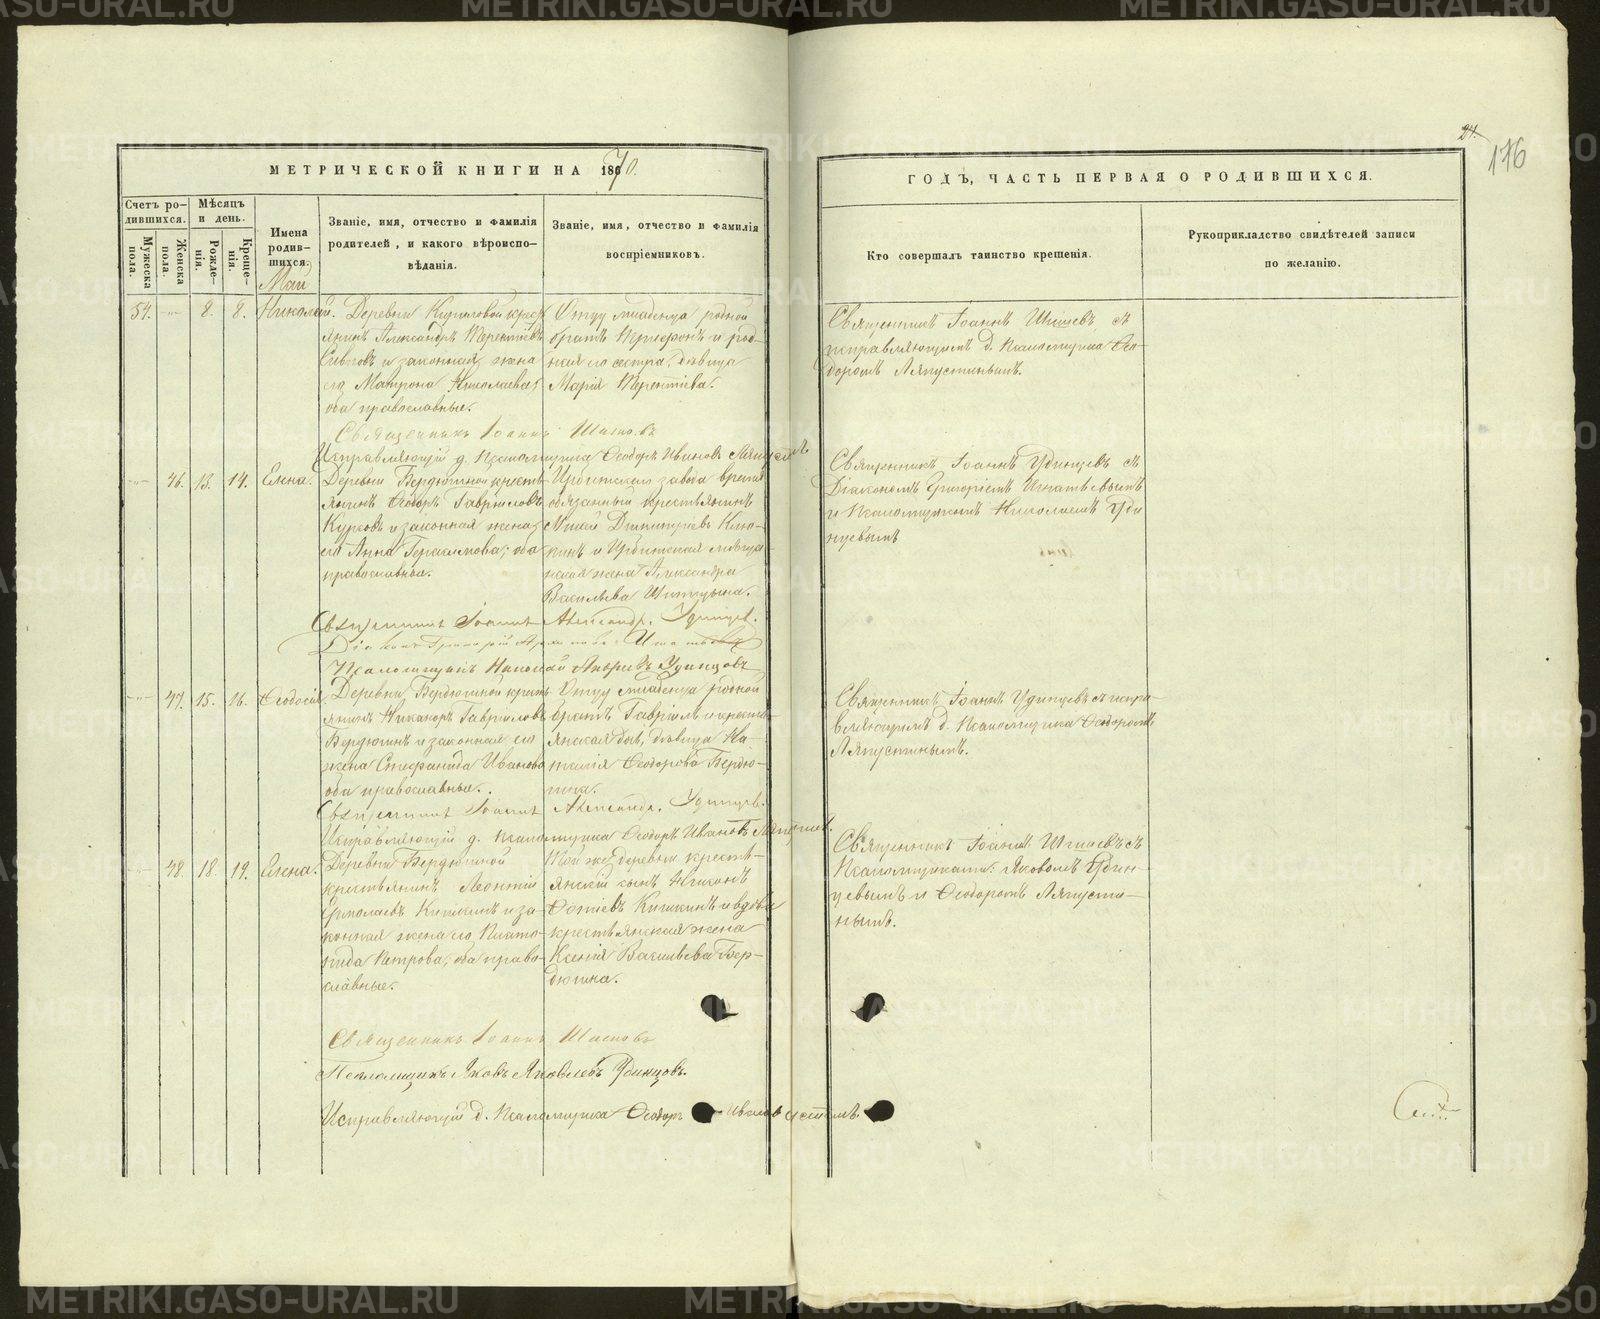 МЕТРИЧЕСКОЙ КНИГИ НА 1870.
ГОДЪ, ЧАСТЬ ПЕРВАЯ О РОДИВШИХСЯ.
24.
176
Счетъ родившихся.
Мужеска пола.
Женска пола.
Мѣсяцъ и день.
Рожденія.
Крещенія.
Имена родившихся.
Званіе, имя, отчество и фамилія
родителей, и какого вѣроиспо-
вѣданія.
Званіе, имя, отчество и фамилія
воспріемниковъ.
Кто совершалъ таинство крещенія.
Рукоприкладство свидѣтелей записи
по желанію.
Май
54. 8. 8. Николай.
Деревни Кириловой крест
янинъ Александръ Терентіевъ
и законная жена
его Матрона Николаева,
оба православные.
Отцу младенца родной
братъ Трифонъ и род-
ная его сестра, дѣвица
Марія Терентіева.
Священникъ Іоаннъ Шишевъ съ
исправляющимъ д. Псаломщика Ѳео-
доромъ Ляпустинымъ.
Священникъ Іоаннъ
Исправляющій д. Псаломщика Ѳеодоръ Ивановъ
46. 13. 14. Елена.
Деревни Бердюгиной кресть
янинъ Ѳеодоръ Гавриловъ
и законная жена
его Анна Герасимова; оба
православные.
Ирбитскаго завода времен
обязанный крестьянинъ
Димитріевъ
и Ирбитская мѣщан-
ская жена Александра
Васильева
Священникъ Іоаннъ Удинцевъ съ
Діакономъ Григоріемъ Игнатьевымъ
и Псаломщикомъ Николаемъ Уди
нцевымъ
Священникъ Іоаннъ Александр. Удинцев.
Діаконъ Григорій
Псаломщикъ Николай Андреевъ Удинцовъ
47. 15. 16. Ѳеодосія.
Деревни Бердюгиной кресть
янинъ Никаноръ Гавриловъ
Бердюгинъ и законная его
жена Стефанида Иванова
оба православные.
Отцу младенца родной
братъ Гавріилъ и кресть
янская дочь, дѣвица На-
талія Ѳеодорова Бердю-
гина.
Священникъ Іоаннъ Удинцевъ съ испра-
вляющимъ д. Псаломщика Ѳеодоромъ
Ляпустинымъ.
Священникъ Іоаннъ Александр. Удинцев.
Исправляющій д. Псаломщика Ѳеодоръ Ивановъ
48. 18. 19. Елена.
Деревни Бердюгиной
крестьянинъ Леонтій
Ермолаевъ Кишкинъ и за-
конная жена его Плато-
нида Петрова, оба право-
славные.
Той же деревни кресть-
янскій сынъ Никонъ
Фотіевъ Кишкинъ и вдова
крестьянская жена
Ксенія Васильева Бер-
дюгина.
Священникъ Іоаннъ съ
Псаломщиками: Яковомъ Удин-
цевымъ и Ѳеодоромъ Ляпусти-
нымъ.
Священникъ Іоаннъ
Псаломщикъ Яковъ Яковлевъ Удинцовъ.
Исправляющій д. Псаломщика Ѳеодоръ Ивановъ
METRIKI.GASO-URAL.RU